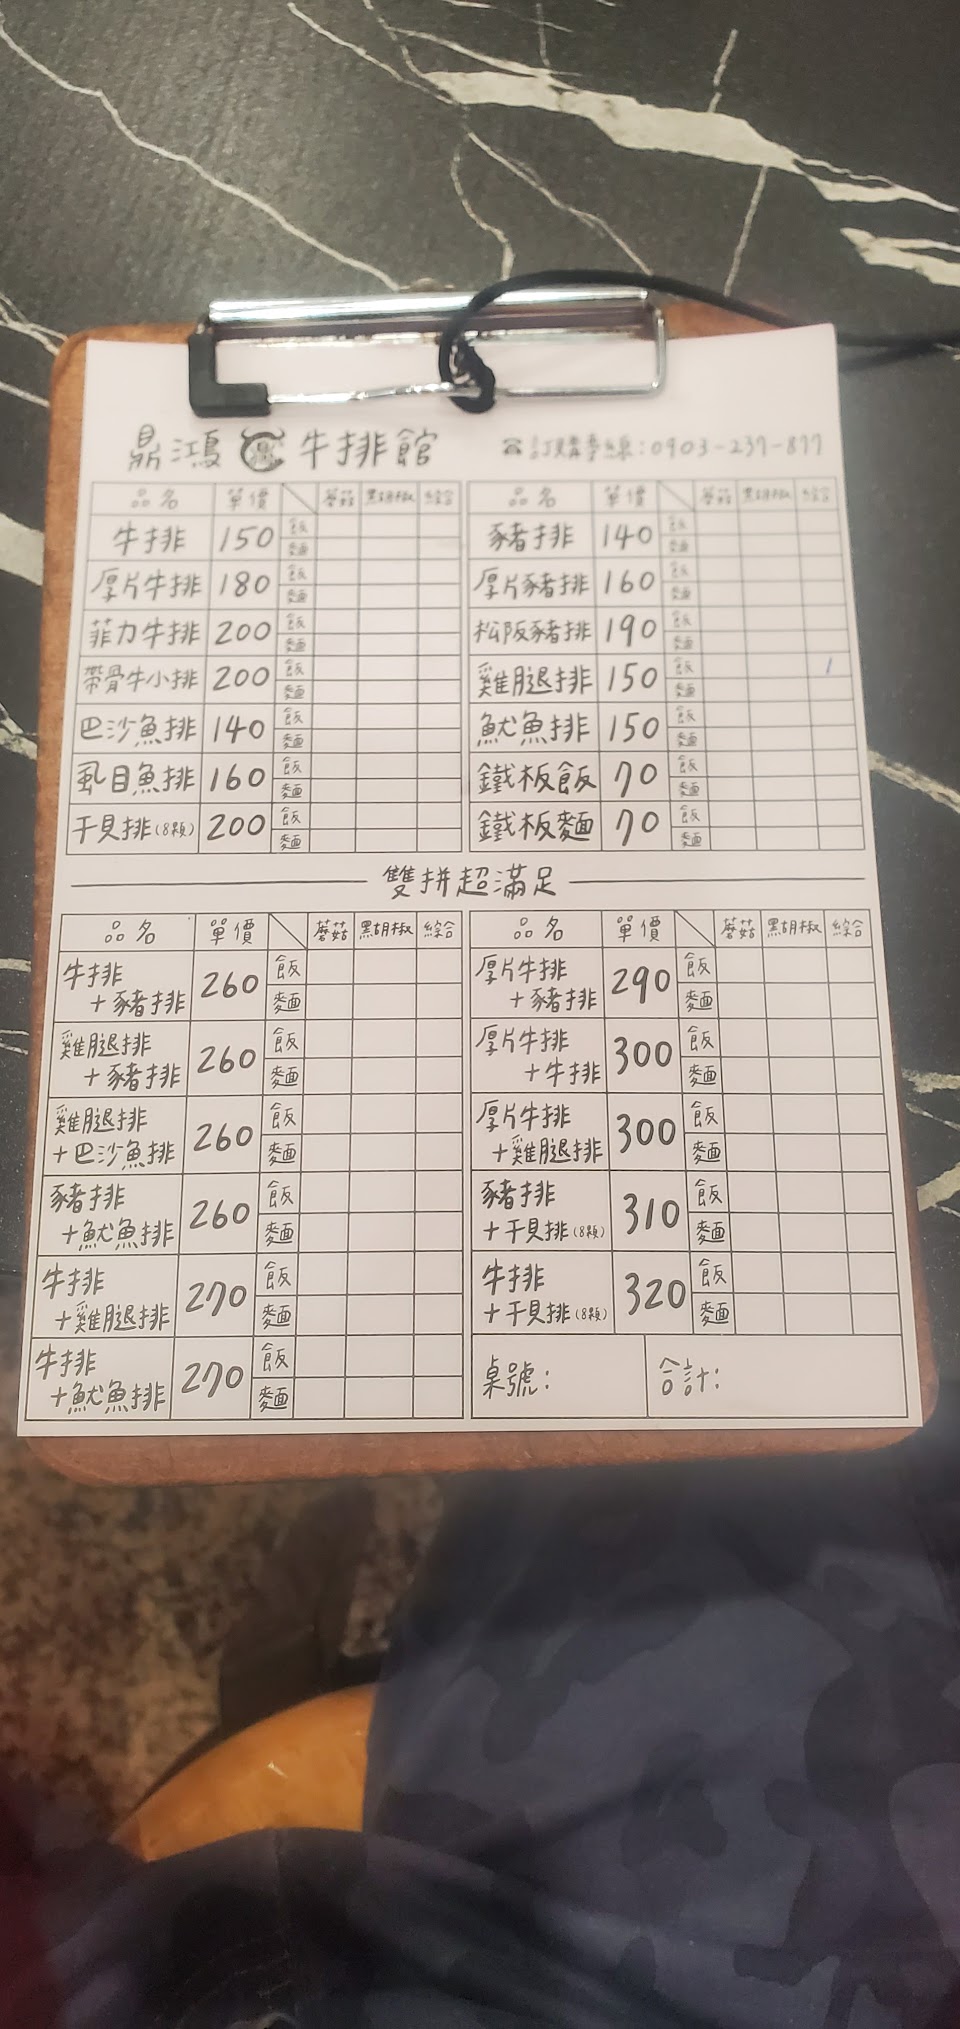 鼎鴻 牛排館 ☎訂購專線:0903-237-877
品名 單價 蘑菇 黑胡椒 綜合
牛排 150 飯 麵
厚片牛排 180 飯 麵
菲力牛排 200 飯 麵
帶骨牛小排 200 飯 麵
巴沙魚排 140 飯 麵
虱目魚排 160 飯 麵
干貝排(8顆) 200 飯 麵
品名 單價 蘑菇 黑胡椒 綜合
豬排 140 飯 麵
厚片豬排 160 飯 麵
松阪豬排 190 飯 麵
雞腿排 150 飯 1 麵
魷魚排 150 飯 麵
鐵板飯 70 飯 麵
鐵板麵 70 飯 麵
雙拼超滿足
品名 單價 蘑菇 黑胡椒 綜合
牛排
+豬排 260 飯 麵
雞腿排
+豬排 260 飯 麵
雞腿排
+巴沙魚排 260 飯 麵
豬排
+魷魚排 260 飯 麵
牛排
+雞腿排 270 飯 麵
牛排
+魷魚排 270 飯 麵
品名 單價 蘑菇 黑胡椒 綜合
厚片牛排
+豬排 290 飯 麵
厚片牛排
+牛排 300 飯 麵
厚片牛排
+雞腿排 300 飯 麵
豬排
+干貝排(8顆) 310 飯 麵
牛排
+干貝排(8顆) 320 飯 麵
桌號: 合計: